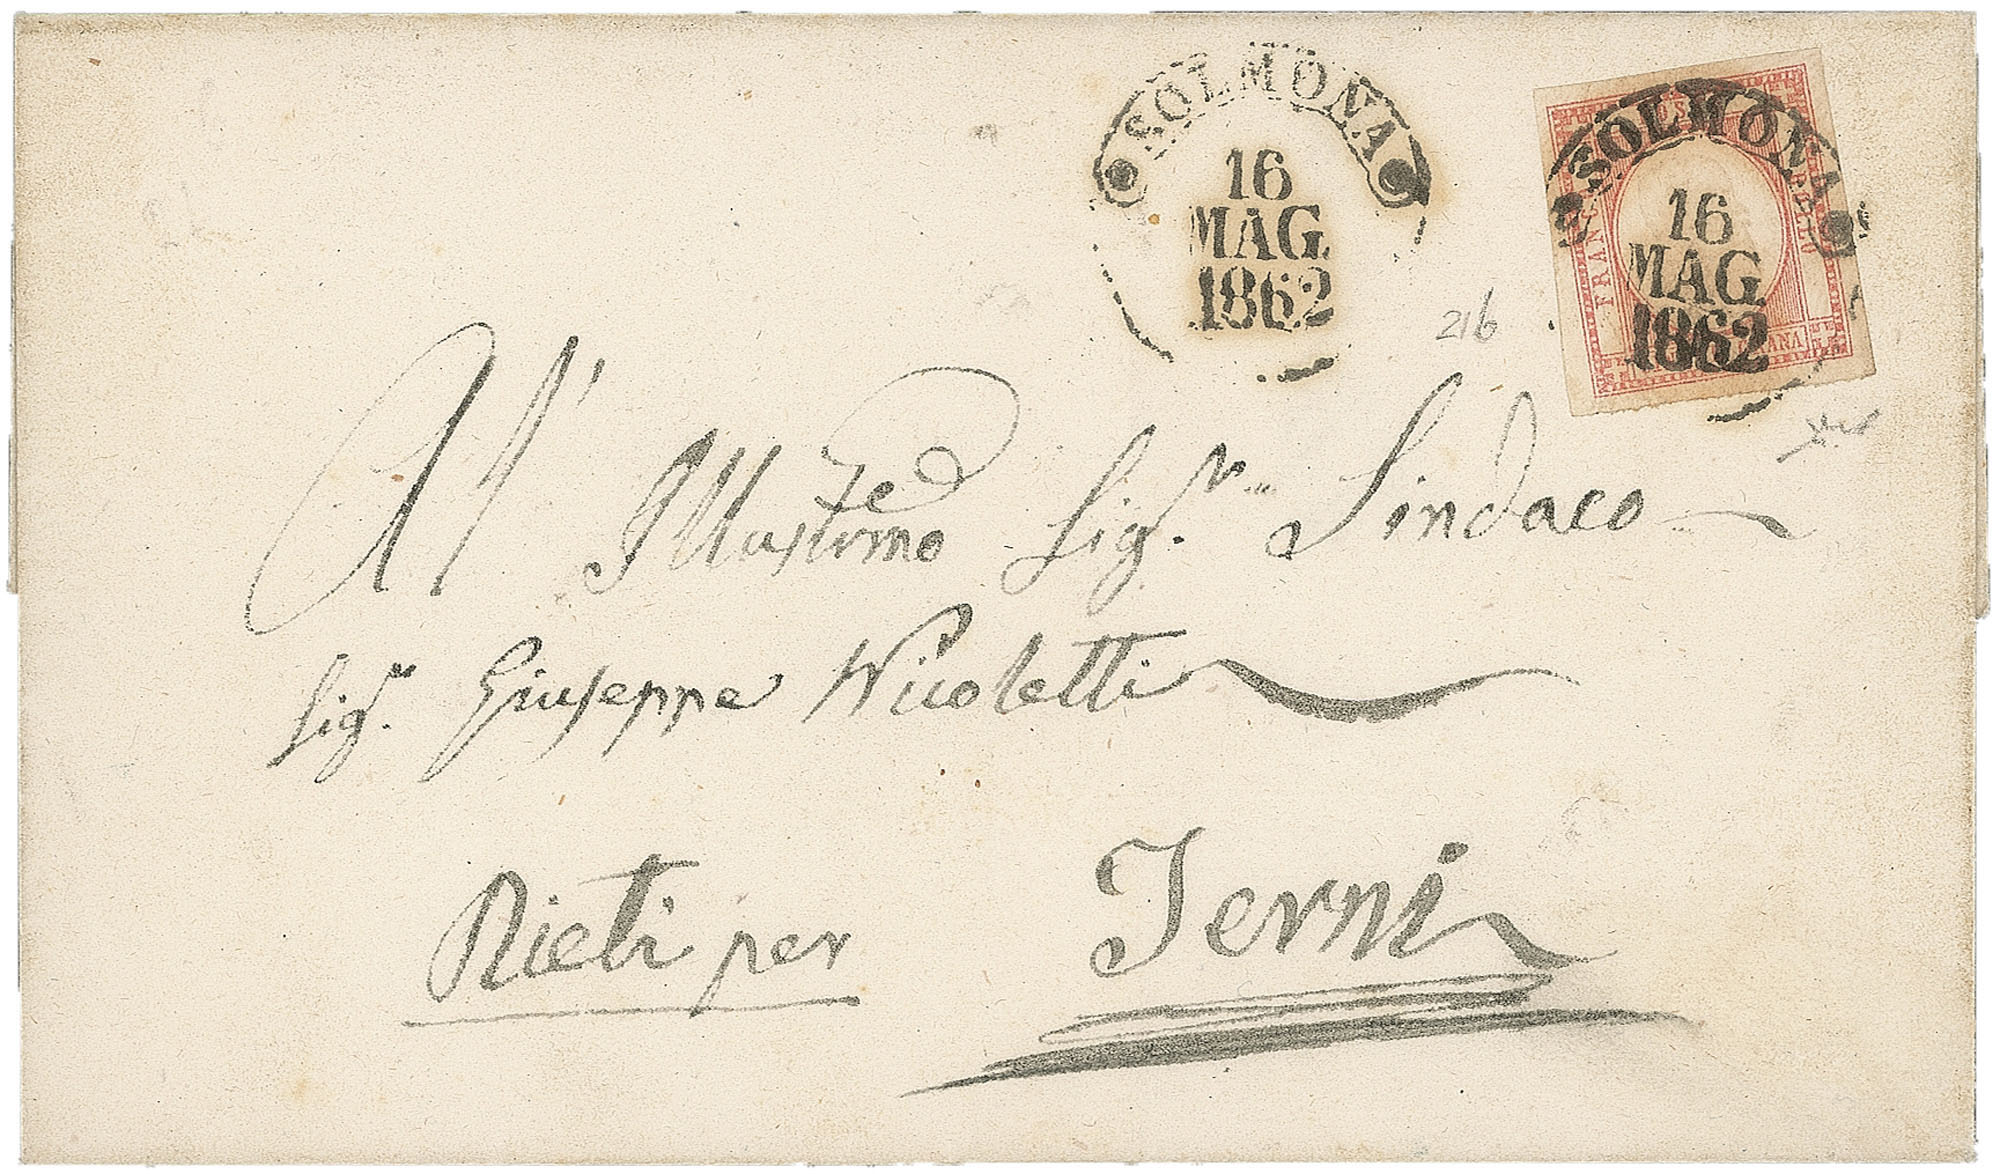 SOLMONA
16
MAG
1862
FRANCO BOLLO
SOLMONA
16
MAG
1862
216
All' Illustrmo Sigr Sindaco
Sigr Giuseppe Nicoletti
Rieti per Terni